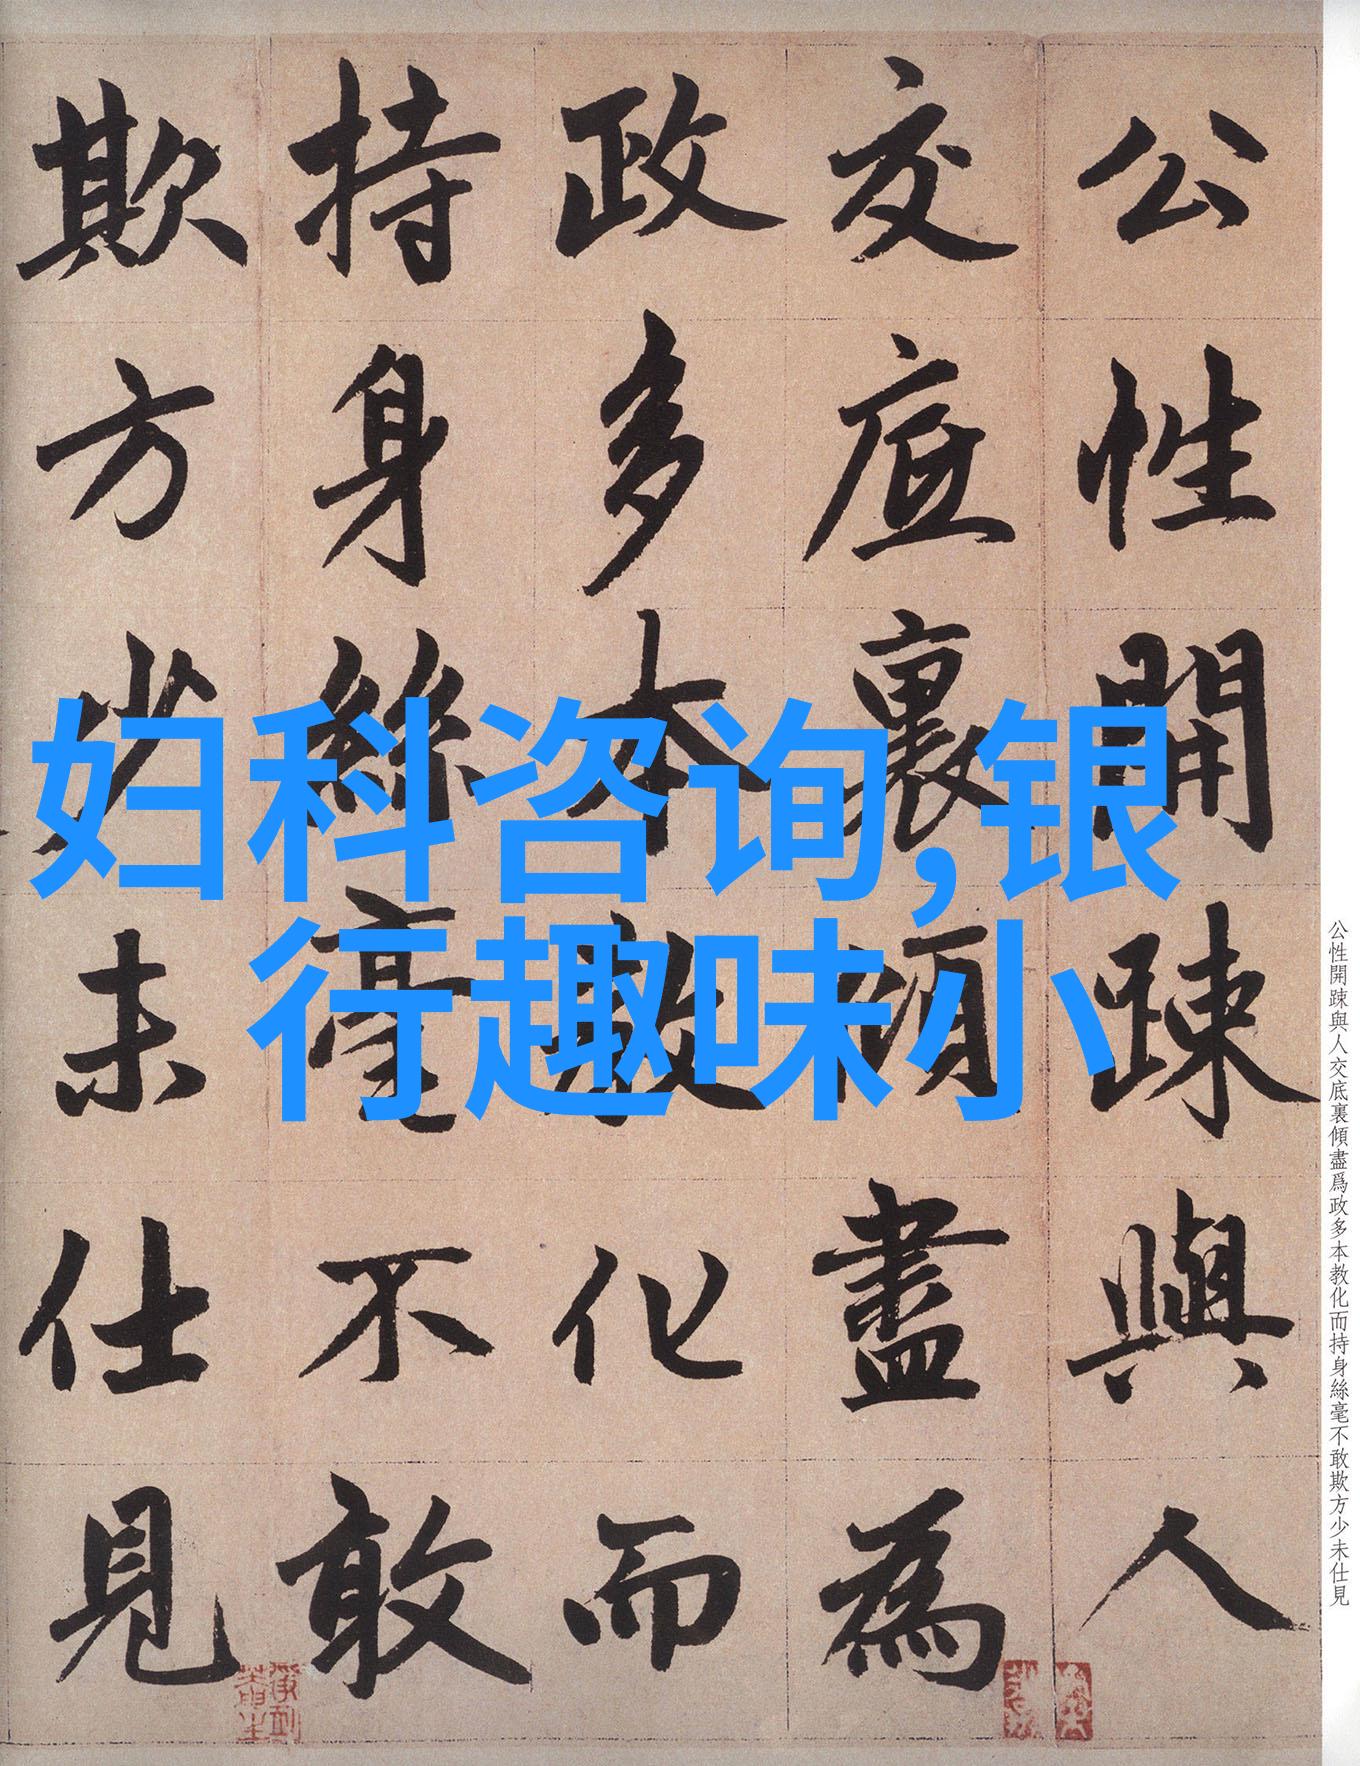 公性開踈與人
交底裏傾盡為
政多本教化而
持身絲毫不敢
欺方少未仕見
妇科咨询,银
行趣味小
公性開踈與人交底裏傾盡爲政多本教化而持身絲毫不敢欺方少未仕見